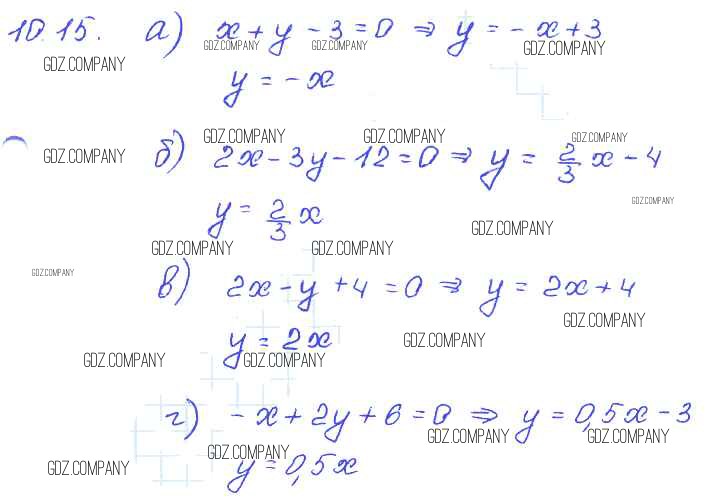 10.15. а) x + y - 3 = 0 ⇒ y = -x + 3
GDZ.COMPANY GDZ.COMPANY GDZ.COMPANY GDZ.COMPANY
y = -x
GDZ.COMPANY GDZ.COMPANY GDZ.COMPANY
GDZ.COMPANY б) 2x - 3y - 12 = 0 ⇒ y = 2/3 x - 4
GDZ.COMPANY
y = 2/3 x
GDZ.COMPANY
GDZ.COMPANY GDZ.COMPANY
GDZ.COMPANY
в) 2x - y + 4 = 0 ⇒ y = 2x + 4
GDZ.COMPANY
y = 2x
GDZ.COMPANY
GDZ.COMPANY GDZ.COMPANY
г) -x + 2y + 6 = 0 ⇒ y = 0,5x - 3
GDZ.COMPANY GDZ.COMPANY
GDZ.COMPANY
y = 0,5x
GDZ.COMPANY